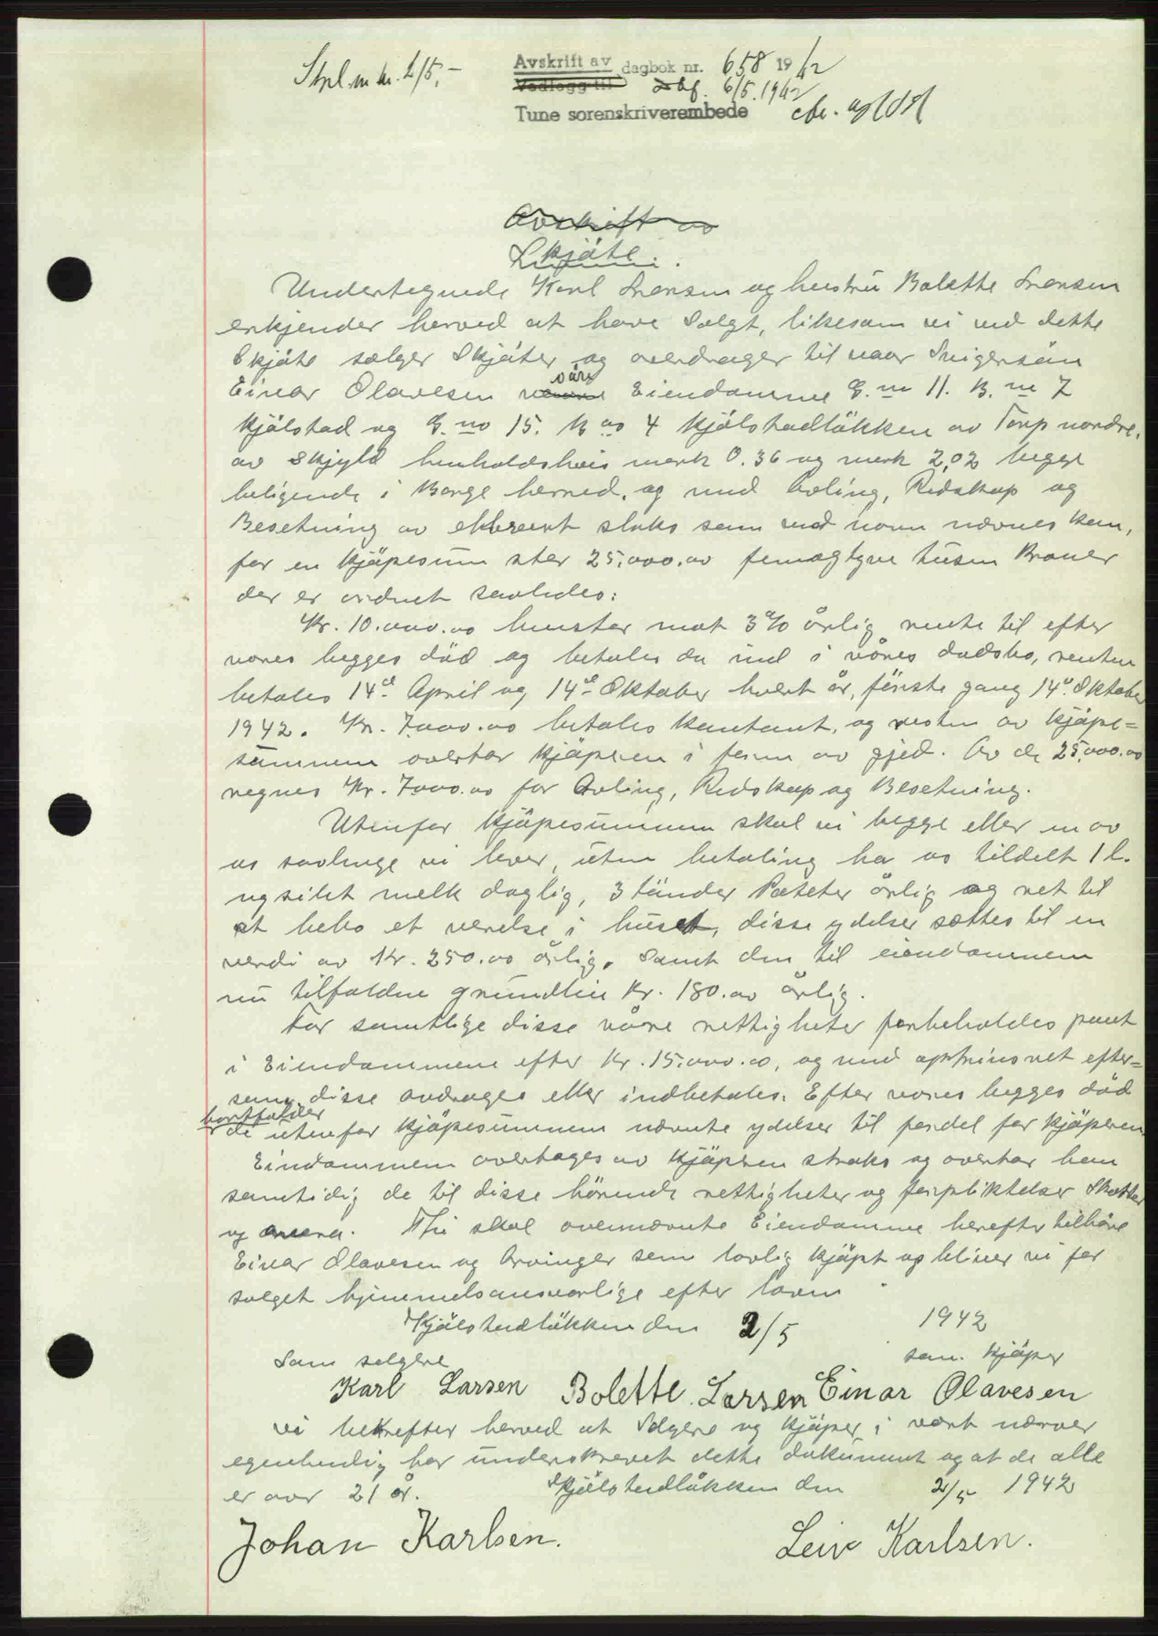 Stpl.m kr. 215,-
Avskrift av dagbok nr. 658 1942
Vedlegg til
dbf. 6/5.1942
Tune sorenskriverembede
Avskrift av
Skjöte.
Undertegnede Karl Larsen og hustru Bolette Larsen
erkjender herved at have Solgt, likesom vi ved dette
Skjöte sælger Skjöter og overdrager til vaar Svigersön
Einar Olavesen våre Eiendomme G. no 11. B. no 7
Kjölstad og G. no 15. B no 4 Kjölstadlökken av Torp nordre,
av Skjyld henholdsvis merk 0.36 og merk 2,02 begge
beligende i Borge herred, og med Avling, Redskap og
Besetning av ethvert slaks som ved navn nævnes kan,
for en Kjöpesum stor 25.000.00 femogtyve tusen Kroner
der er ordnet saaledes:
Kr. 10.000.00 henstar mot 3% årlig rente til efter
vores begges död og betales da ind i våres dødsbo, renten
betales 14de April og 14de Oktober hvert år, förste gang 14de Oktober
1942. Kr. 7000.00 betales Kontant, og resten av Kjöpe=
summen overtar Kjöperen i form av gjeld. Av de 25,000.00
regnes Kr. 7000.00 for Avling, Redskap og Besetning.
Utenfor Kjöpesummen skal vi begge eller en av
os saalenge vi lever, uten betaling ha os tildelt 1 l.
nysilet melk daglig, 3 tünder Poteter årlig og ret til
at bebo et værelse i huset, disse ydelser sættes til en
verdi av Kr. 250.00 årlig. Samt den til eiendommen
nu tilfaldne grundleie Kr. 180.00 årlig.
For samtlige disse våre rettigheter forbeholdes pant
i Eiendommene efter Kr. 15.000.00, og med opprinsret efter=
som disse avdrages eller indbetales. Efter vores begges död
bortfalder
de utenfor Kjöpesummen nævnte ydelser til fordel for Kjöperen
Eiendommen overtages av Kjöperen straks og overtar han
samtidig de til disse hörende rettigheter og forpliktelser Skatter
og onera. Thi skal ovennævnte Eiendomme herefter tilhöre
Einar Olavesen og Arvinger som lovlig Kjöpt og bliver vi for
salget hjemmelsansvarlige efter loven
Kjölstadlökken den 2/5 1942
Som selgere
som Kjöper
Karl Larsen Bolette Larsen Einar Olavesen
Vi bekrefter herved at Selgere og Kjöper i vort nærvær
egenhendig har underskrevet dette dokument og at de alle
er over 21 år. Kjölstadlökken den 2/5 1942
Johan Karlsen. Leiv Karlsen.